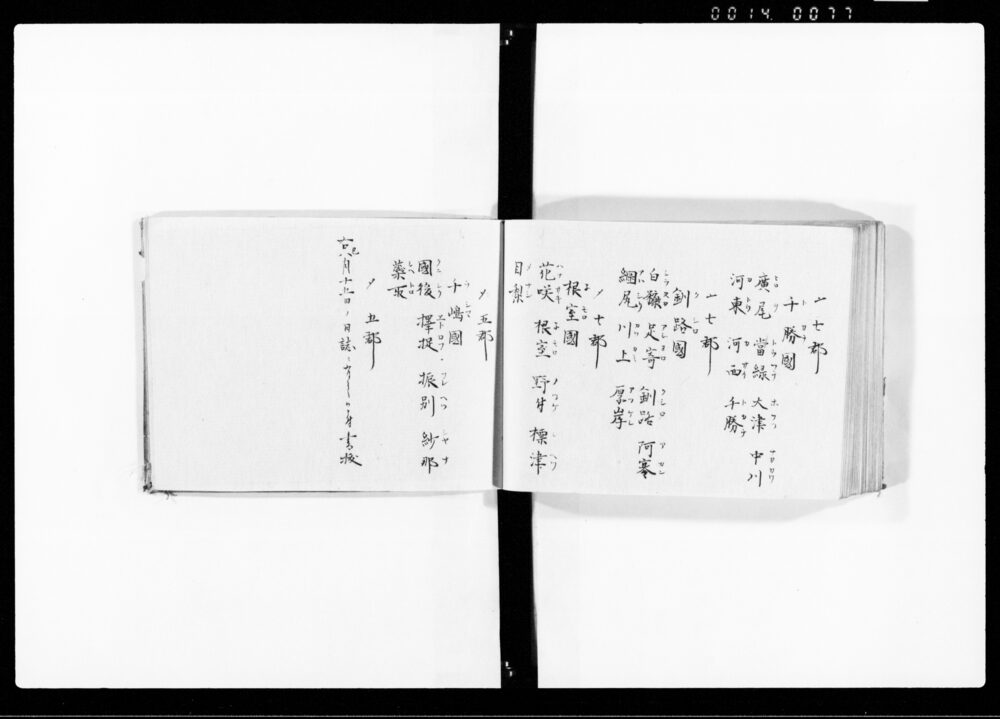 0014 0077
〆七郡
千勝國
廣尾 當縁 大津 中川
河東 河西 千勝
〆七郡
釧路國
白糠 足寄 釧路 阿寒
網尾 川上 厚岸
〆七郡
根室國
花咲 根室 野付 標津
目梨
〆五郡
千嶋國
國後 擇捉 振別 紗那
蘂取
〆五郡
八月十九日ノ日誌